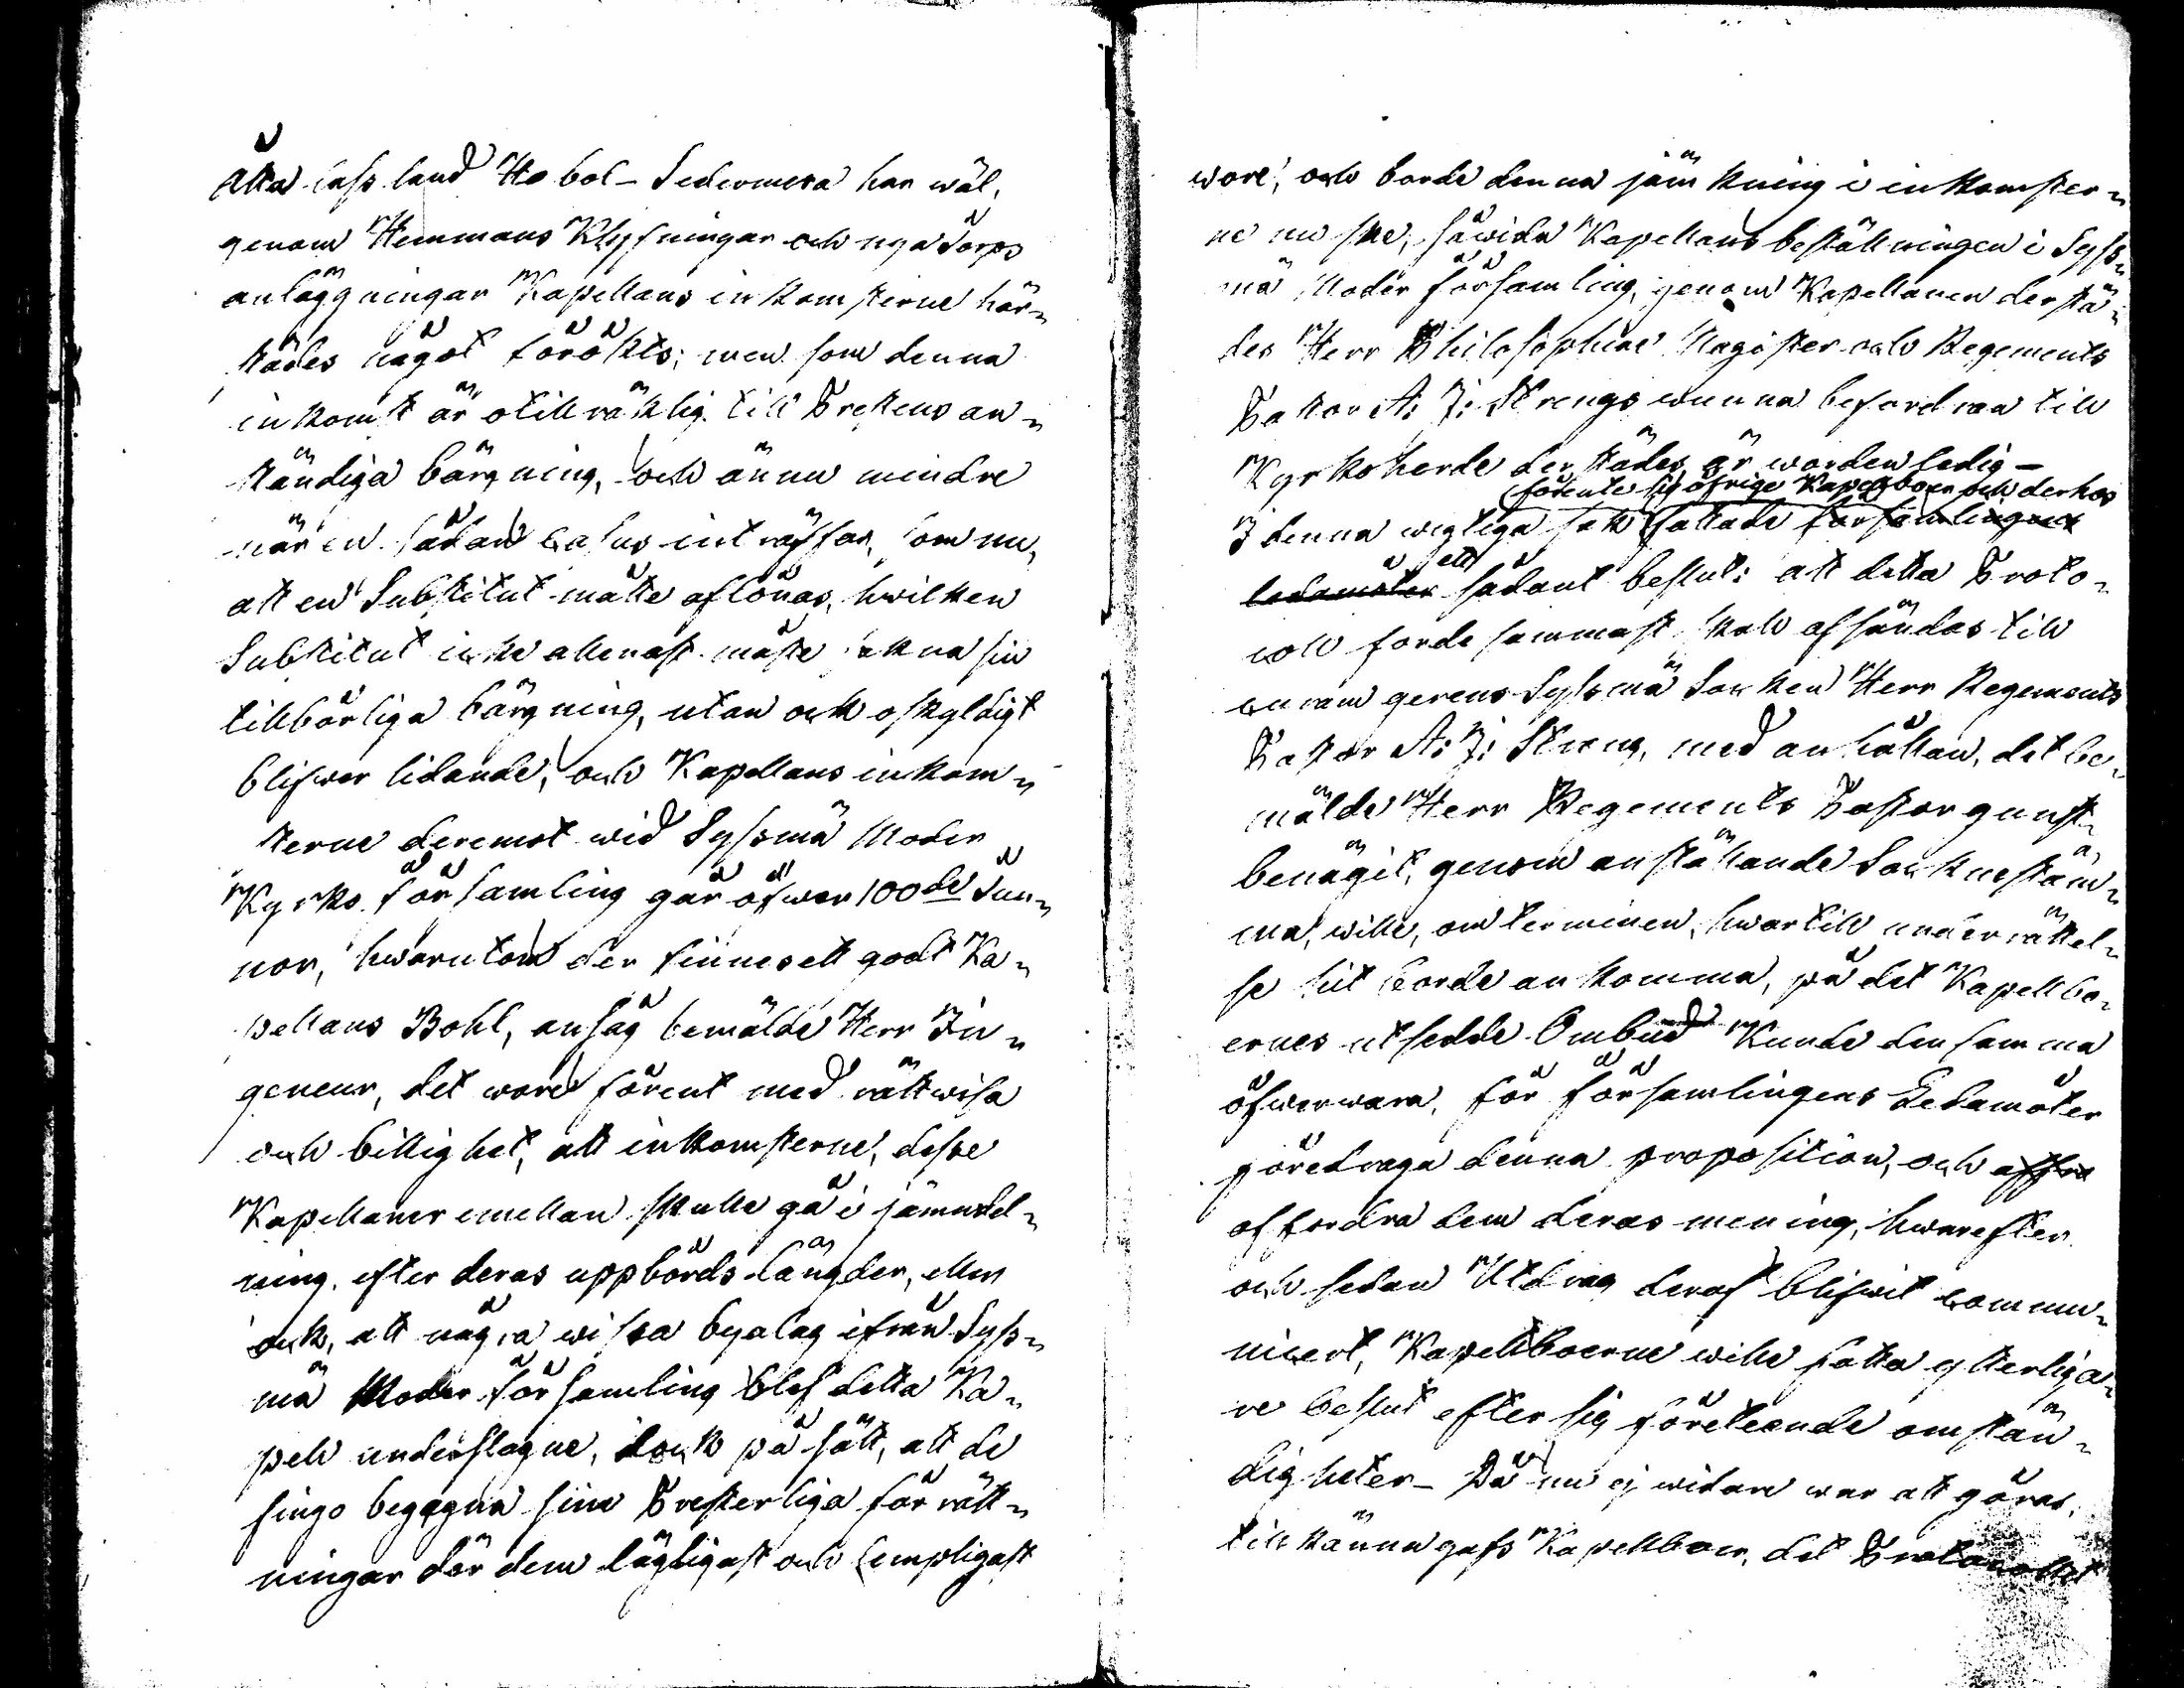 åtta lass land Ho bol – Sedermera har wäl,
genom Hemmans Klyfningar och nya Torps
anläggningar Kapellans inkomsterne här-
städes något förökts; men som denna
inkomst är otillräklig till Prestens an-
ständiga bärgning, och ännu mindre
när en sådan casus inträffar, som nu,
att en Substitut måtte aflönas, hwilken
Substitut icke allenast måste sakna sin
tillbörliga bärgning, utan ock oskyldigt
blifwer lidande, och Kapellans inkom-
sterne deremot wid Sysmä Moder
Kyrko församling går öfwer 100de Tun-
nor, hwarutom der finnes ett godt Ka-
pellans Bohl, ansåg bemälde Herr In-
geneur, det wore förent med rättwisa
och billighet, att inkomsterne, desse
Kapellaner emellan skulle gå i jämndel-
ning, efter deras uppbörds längder, eller
ock, att några wissa byalag ifrån Syss-
mä Moder församling blef detta Ka-
pell underslagne, dock på sätt, att de
fingo begagna sine Presterliga förrätt-
ningar där dem lägligast och lempligast
wore, och borde denna jämkning i inkomster-
ne nu ske, såwida Kapellans beställningen i Syss-
mä Moder församling, genom Kapellanen derstä-
des Herr Philosophiae Magister och Regements
Pastor A: J: Strengs wunna befordran till
Kyrkoherde derstädes, är worden ledig –
förente sig öfrige Kapellboer och derhos
I denna wigtiga sak fattade församlingens
ledamöter ett sådant beslut: att detta Proto-
coll fordesammast skall afsändas till
curam gerens Sysmä Socken Herr Regements
Pastor A: J: Streng, med anhållan, det be-
mälde Herr Regements Pastor gunst-
benägit, genom anställande Sockenstäm-
ma, wille, om terminen, hwartill underrättel-
se hit borde ankomma, på det Kapellbo-
ernes utsedde Ombud Kunde densamma
öfwerwara, för församlingens Ledamöter
föredraga denna proposition, och affor
affordra dem deras mening, hwarefter
och sedan Utdrag deraf blifwit commu-
nicert, Kapellboerne wille fatta ytterliga-
re beslut efter sig företeende omstän-
digheter – Då nu ej widare war att göras,
tillkänna gafs Kapellboer, det Protocollet